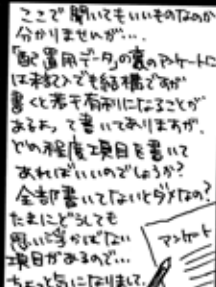 ここで聞いてもいいものなのか
分かりませんが…。
「配置用データ」の裏のアンケートに
は未記入でも結構ですが
書くと若干有利になることが
あるよ。って書いてありますが、
どの程度項目を書いて
あればいいのでしょうか?
全部書いてないとダメなの?
たまにどうしても
思い当かばない
項目があるので…
ちょっと気になりまして。
アンケート